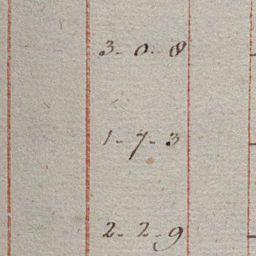 3 - 0 - 8
1 - 7 - 3
2 - 2 - 9